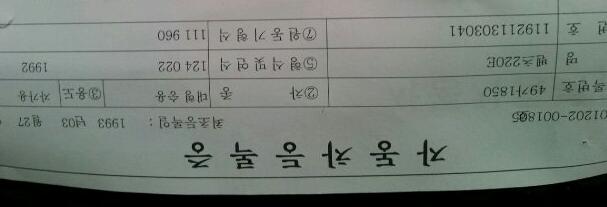 자동차등록증
01202-001805 최초등록일 : 1993 년03 월27
록번호 49가1850 ②차 종 대형승용 ③용도 자가용
명 벤츠220E ⑤형식 및 연식 124 022 1992
번 호 119211303041 ⑦원동기형식 111 960